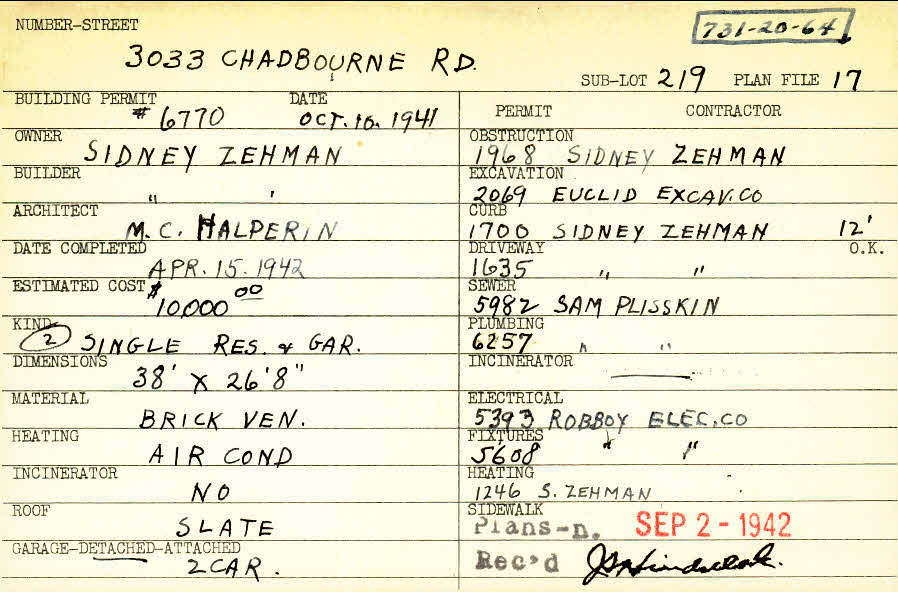 NUMBER-STREET
731-20-64
3033 CHADBOURNE RD.
SUB-LOT 219 PLAN FILE 17
BUILDING PERMIT DATE
# 6770 OCT. 16. 1941
OWNER
SIDNEY ZEHMAN
BUILDER
" "
ARCHITECT
M. C. HALPERIN
DATE COMPLETED
APR. 15. 1942
ESTIMATED COST
$10,000 00
KIND
2 SINGLE RES. & GAR.
DIMENSIONS
38' X 26'8"
MATERIAL
BRICK VEN.
HEATING
AIR COND
INCINERATOR
NO
ROOF
SLATE
GARAGE-DETACHED-ATTACHED
2 CAR.
PERMIT CONTRACTOR
OBSTRUCTION
1968 SIDNEY ZEHMAN
EXCAVATION
2069 EUCLID EXCAV. CO
CURB
1700 SIDNEY ZEHMAN 12'
DRIVEWAY O.K.
1635 " "
SEWER
5982 SAM PLISSKIN
PLUMBING
6257 " "
INCINERATOR
ELECTRICAL
5393 ROBBOY ELEC. CO
FIXTURES
5608 " "
HEATING
1246 S. ZEHMAN
SIDEWALK
Plans-n. SEP 2-1942
Rec'd